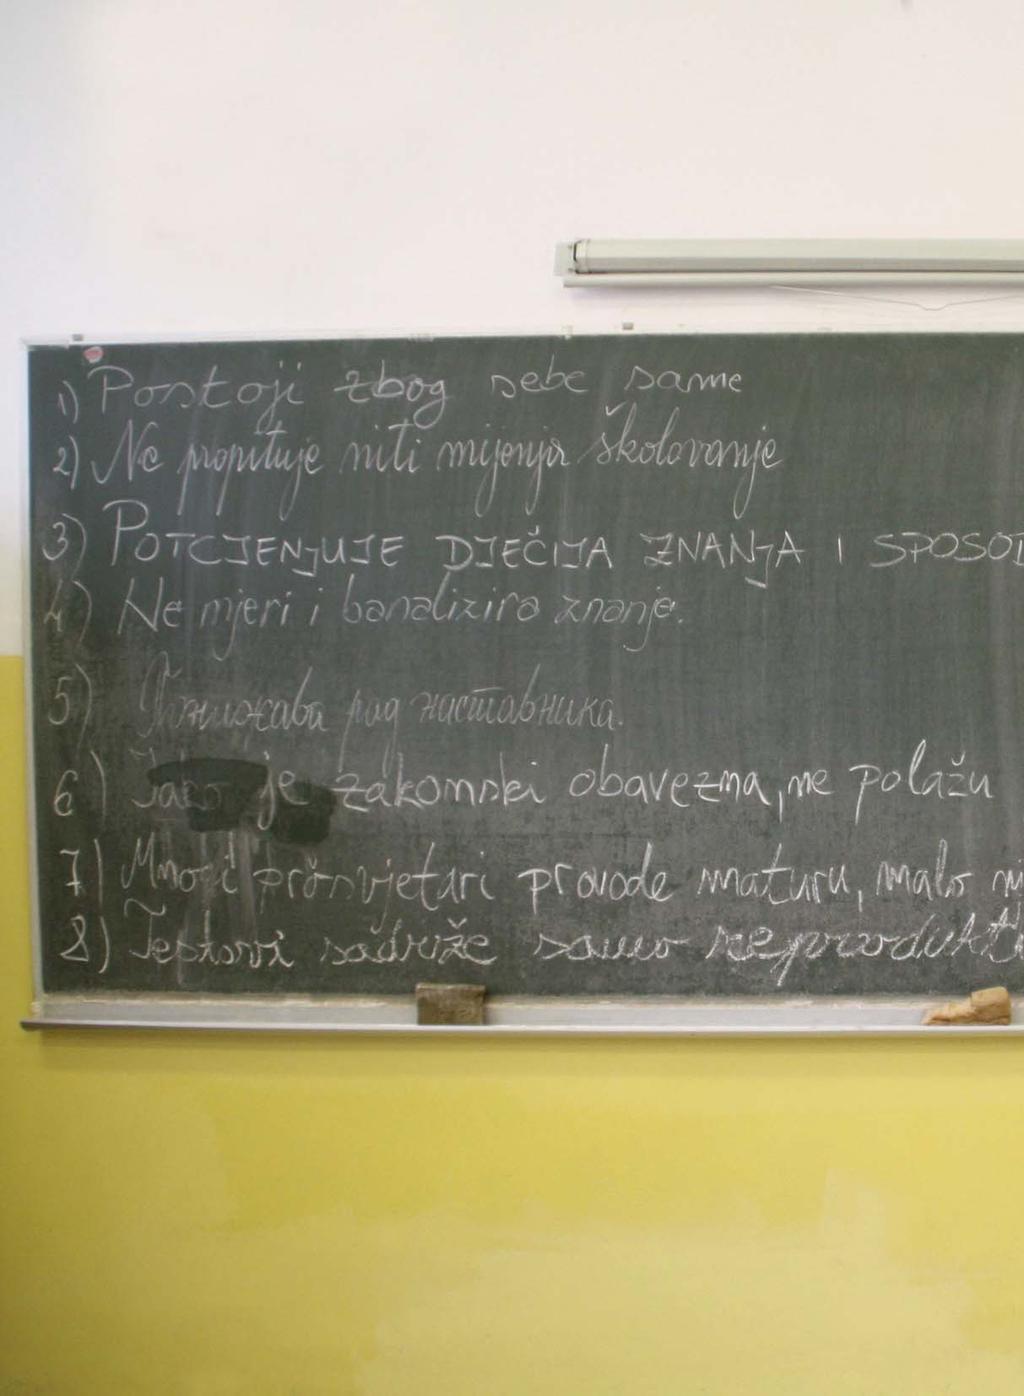 1) Postoji zbog sebe same
2) Ne propituje niti mijenja školovanje
3) POTCJENJUJE DJEČIJA ZNANJA I SPOSO
4) Ne mjeri i banalizira znanje.
5) рад наставника.
6) Iako je zakonski obavezna, ne polažu
7) Mnogi prosvjetari provode maturu, malo nj
8) Testovi sadrže samo reprodukti